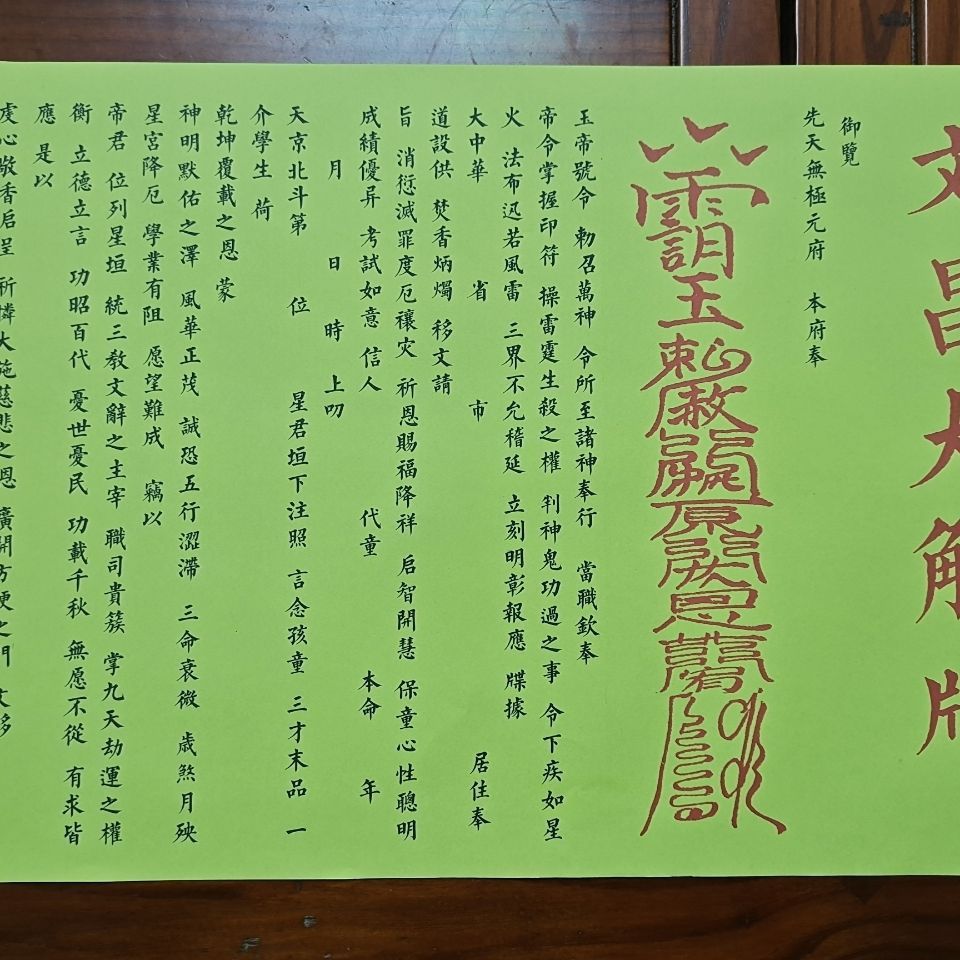 文昌大解牒
御覽
先天無極元府 本府奉
玉
勅
赦
玉帝號令 勅召萬神 令所至諸神奉行 當職欽奉
帝令掌握印符 操雷霆生殺之權 判神鬼功過之事 令下疾如星
火 法布迅若風雷 三界不允稽延 立刻明彰報應 牒據
大中華 省 市 居住奉
道設供 焚香炳燭 移文請
旨 消愆滅罪度厄禳灾 祈恩賜福降祥 启智開慧 保童心性聰明
成績優异 考試如意 信人 代童 本命 年
月 日 時 上叩
天京北斗第 位 星君垣下注照 言念孩童 三才末品 一
介學生 荷
乾坤覆載之恩 蒙
神明默佑之澤 風華正茂 誠恐五行澀滯 三命衰微 歲煞月殃
星宮降厄 學業有阻 愿望難成 竊以
帝君 位列星垣 統三教文辭之主宰 職司貴簇 掌九天劫運之權
衡 立德立言 功昭百代 憂世憂民 功載千秋 無愿不從 有求皆
應 是以
虔心敬香启呈 祈憐大施慈悲之恩 廣開方便之門 文移